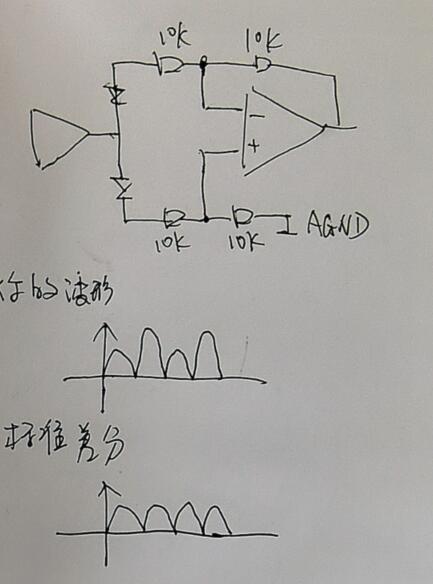 10K 10K
−
+
10K 10K AGND
的波形
标准差分